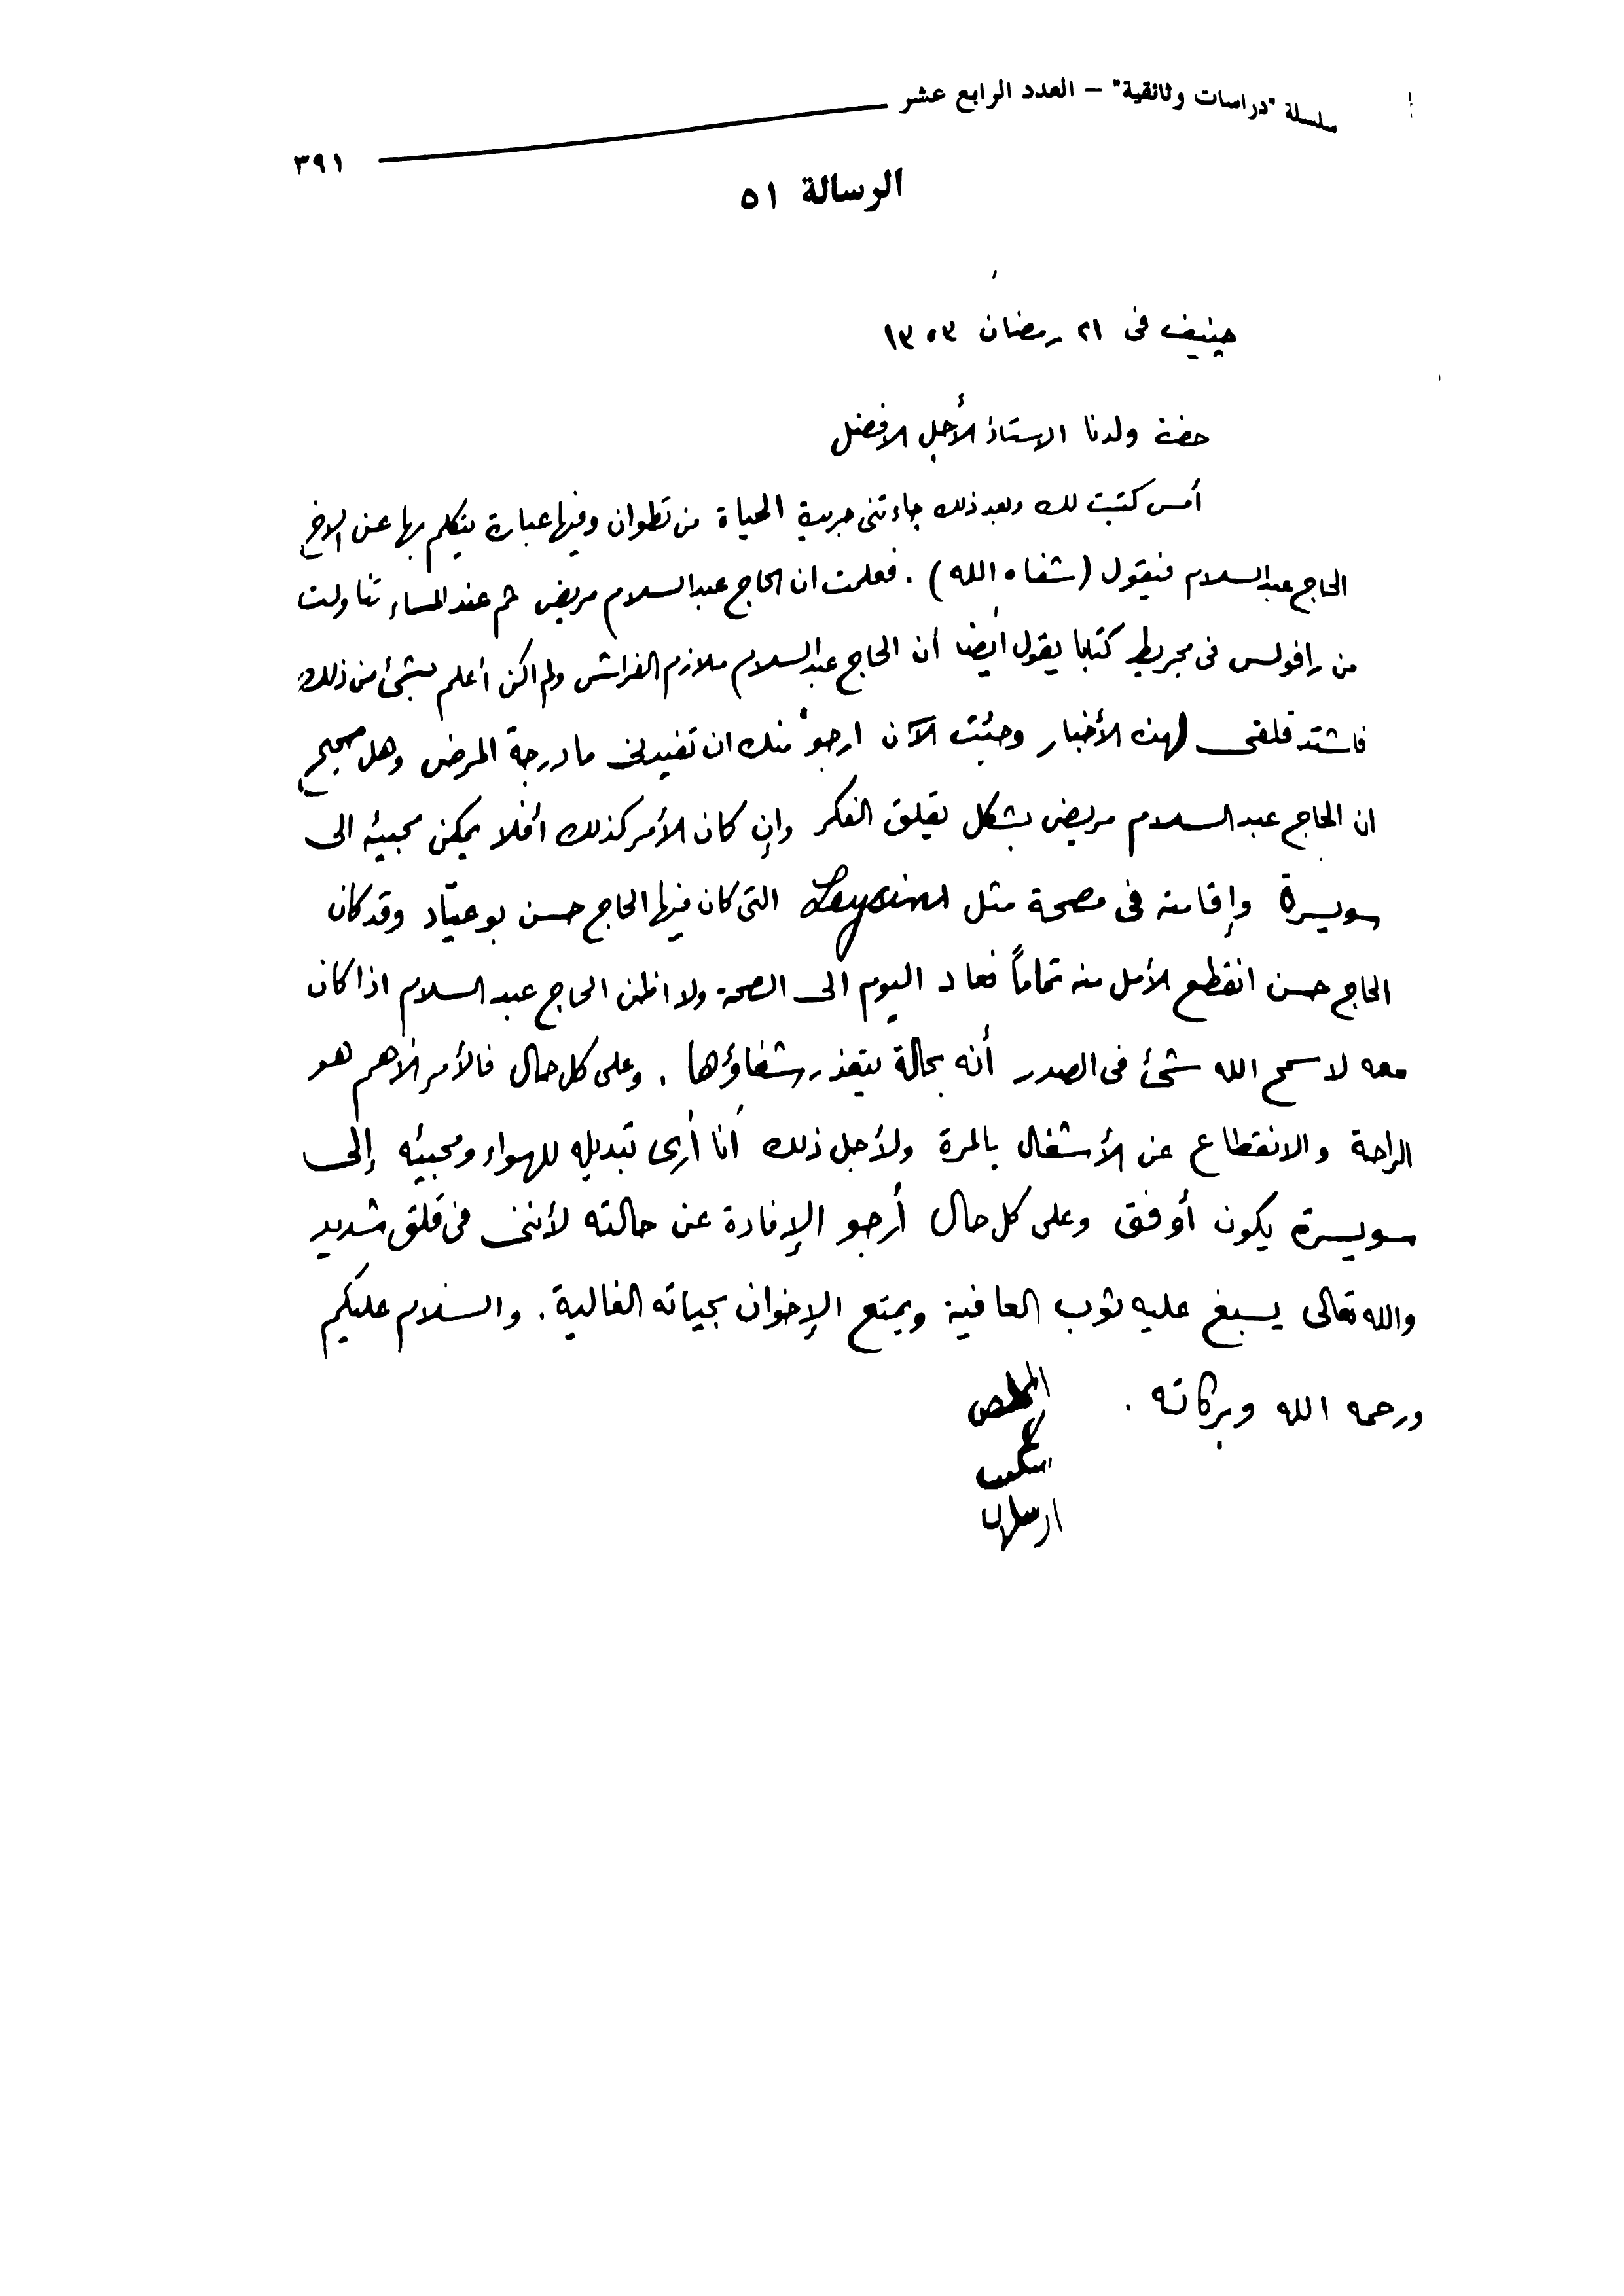 سلسلة "دراسات وثائقية" – العدد الرابع عشر
٣٩١
الرسالة ٥١
جنيف فى ٢١ رمضان ١٣٥٣
حضرة ولدنا الاستاذ الأجل الافضل
أمس كتبت لك وبعد ذلك جاءتنى جريدة الحياة من تطوان وفيها عبارة يتكلم بها عن الاخ
الحاج عبد السلام فيقول (شفاه الله) . فعلمت ان الحاج عبد السلام مريض ثم عند المساء تناولت
من رافولس فى مجريط كتابا يقول أيضا أن الحاج عبد السلام ملازم الفراش ولم اكن أعلم بشئ من ذلك
فاشتد قلقى لهذه الأخبار وجئت الآن ارجو منك ان تفيدنى ما درجة المرض وهل صحيح
ان الحاج عبد السلام مريض بشكل يقلق الفكر وإن كان الأمر كذلك أفلا يمكن مجيئه الى
سويسرة وإقامته فى مصحة مثل Leysins التى كان فيها الحاج حسن بوعيّاد وقد كان
الحاج حسن انقطع الأمل منه تماماً فعاد اليوم الى الصحة ولا اظن الحاج عبد السلام اذا كان
معه لا سمح الله شئ فى الصدر أنه بحالة يتعذر شفاؤها . وعلى كل حال فالأمر الأهم هو
الراحة والانقطاع عن الأشغال بالمرة ولأجل ذلك أنا أرى تبديله للهواء ومجيئه إلى
سويسرة يكون أوفق وعلى كل حال أرجو الإفادة عن حالته لأننى فى قلق شديد
والله تعالى يسبغ عليه ثوب العافية ويمتع الإخوان بحياته الغالية . والسلام عليكم
ورحمه الله وبركاته .
المخلص
شكيب
ارسلان